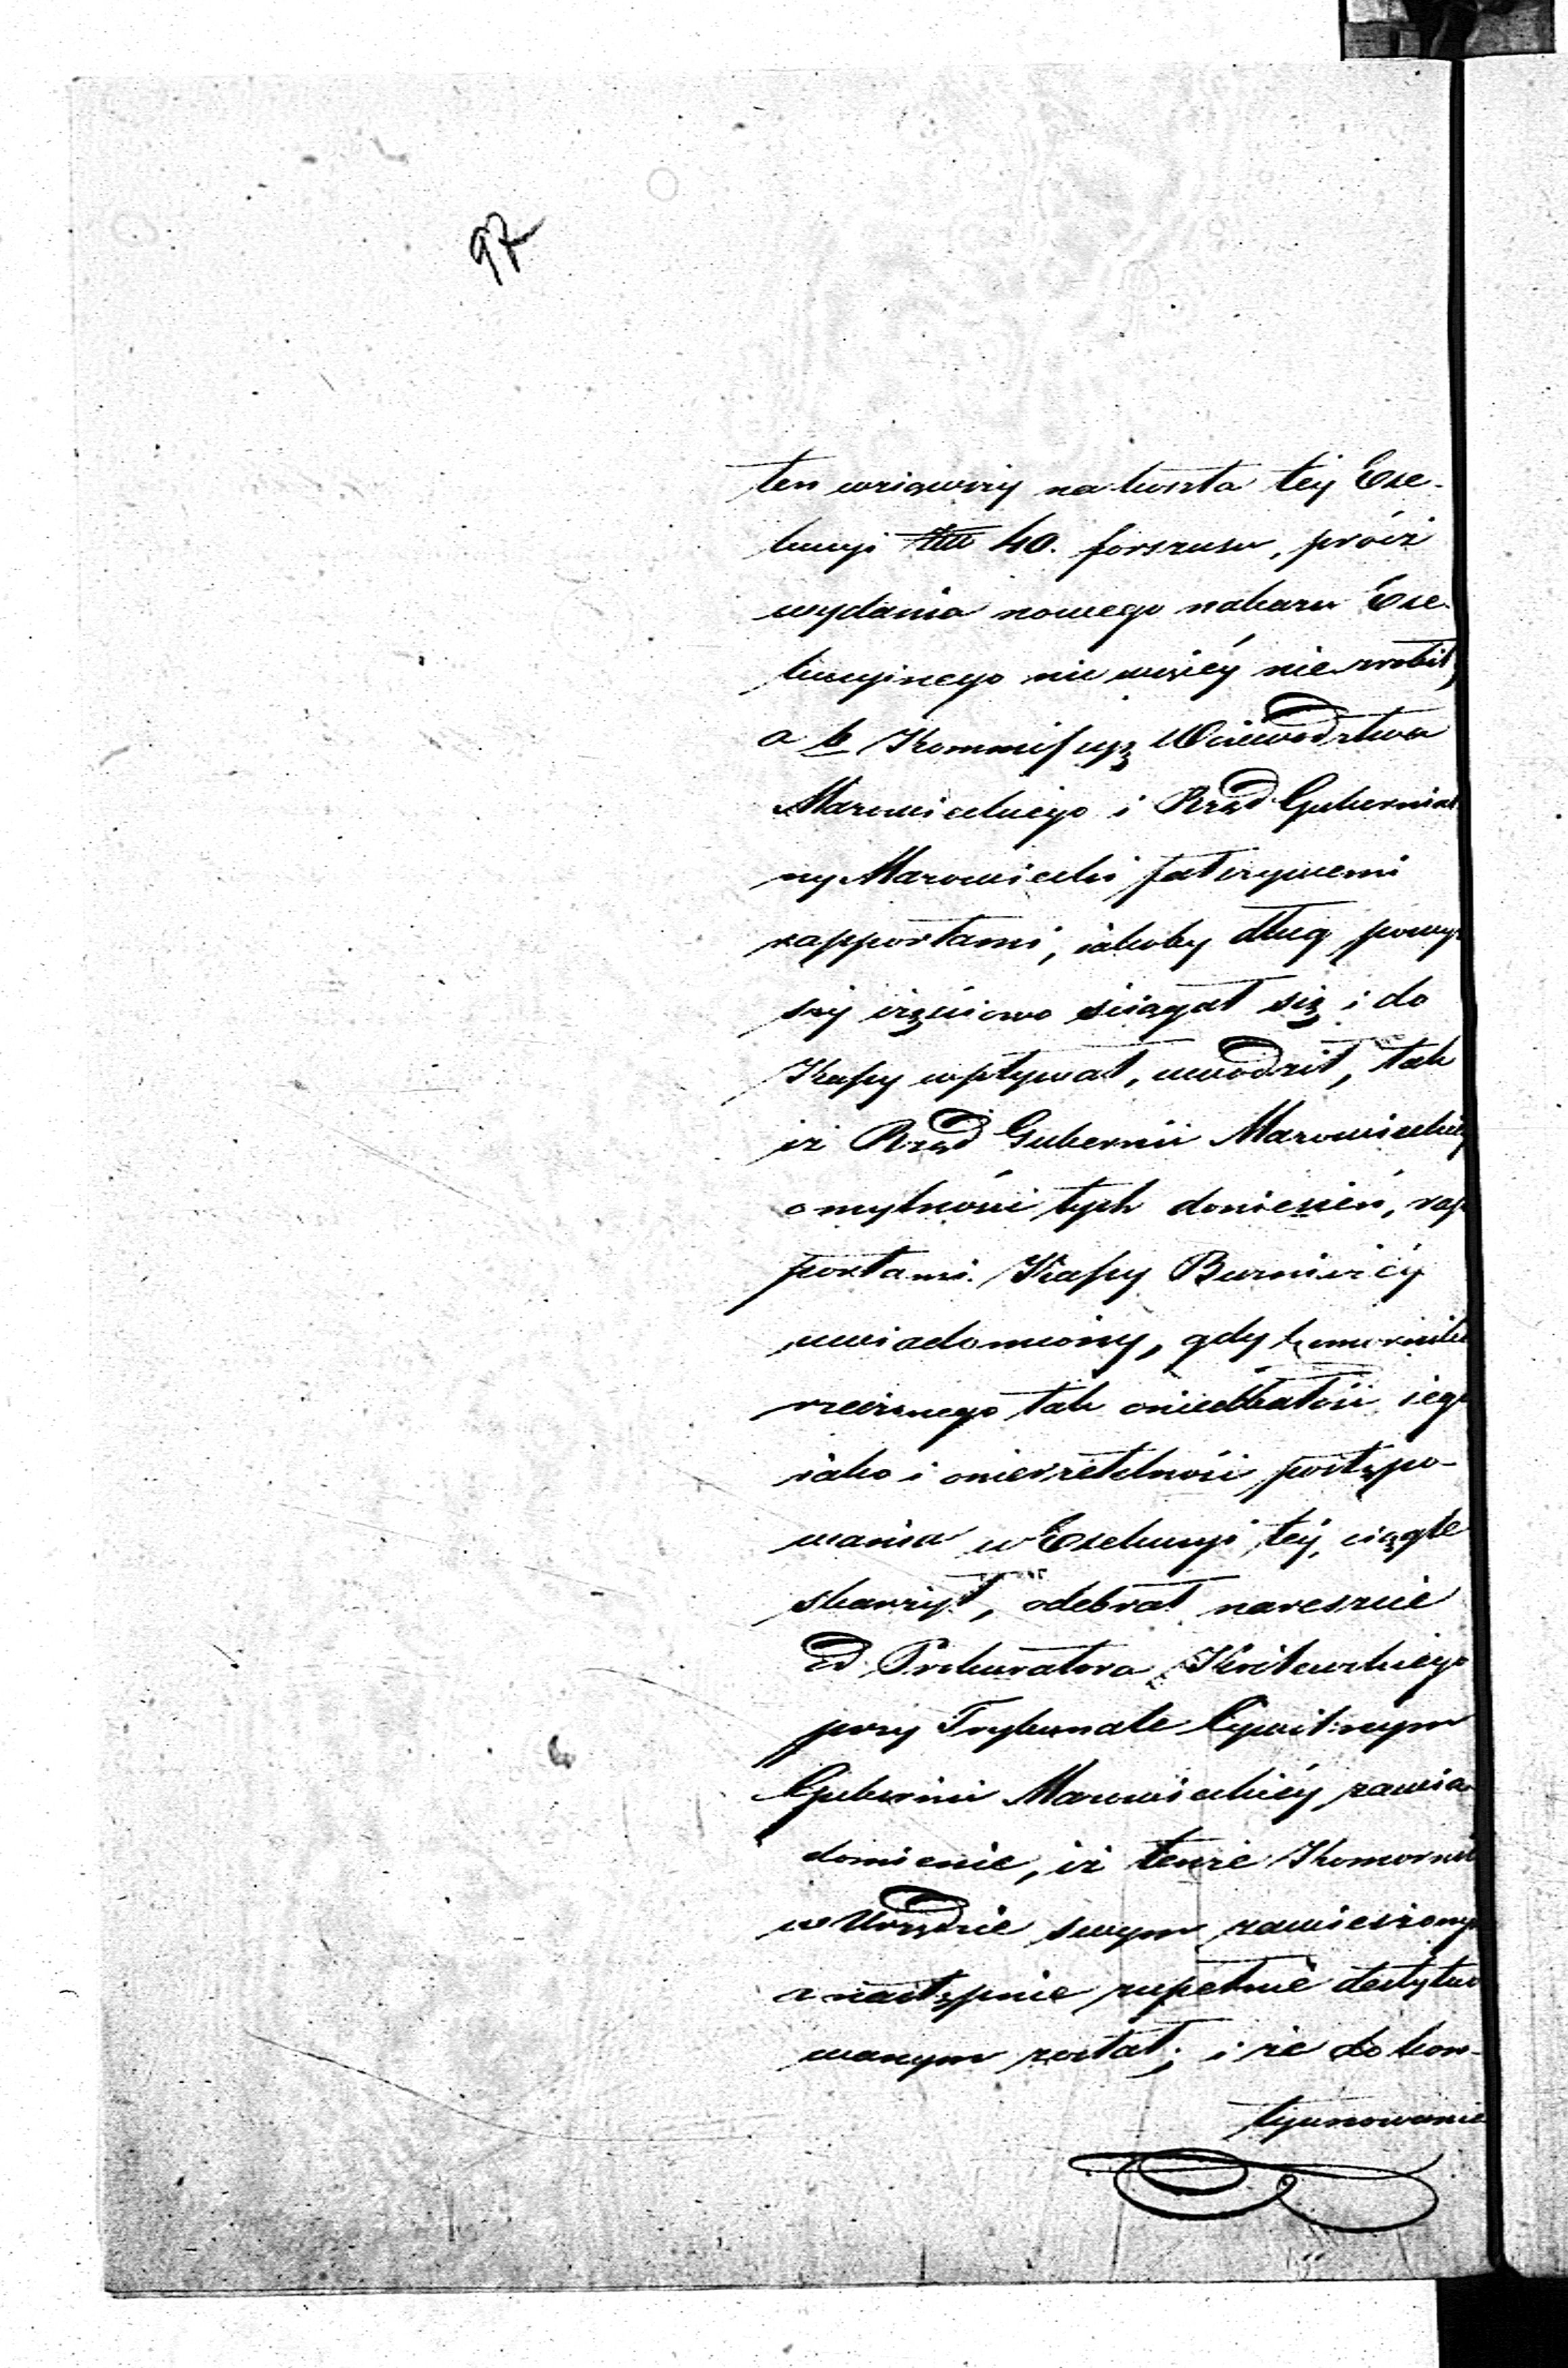 97
ten wziąwszy na koszta tey Exe-
kucyi 40. forszusu, prócz
wydania nowego nakazu Exe-
kucyinego nic więcéy nie zrobił,
a b Kommissyą Woiewództwa
Mazowieckiego i Rząd Gubernial
ny Mazowiecki fałszywemi
rapportami, iakoby dług powyż
szy częściowo ściągał się i do
Kassy wpływał, uwodził, tak
iż Rząd Gubernii Mazowieckiéy
o mylności tych doniesień, rap
portami Kassy
uwiadomiony, gdy Komornika
rzeczonego tak o niedbałość iego
iako i o nierzetelność postępo-
wania w Exekucyi téy, ciągle
skarżył, odebrał nareszcie
od Prokuratora Królewskiego
przy Trybunale Cywilnym
Gubernii Mazowieckiéy zawia
domienie, iż tenże Komornik
w Urzędzie swym zawieszonym
a następnie zupełnie destytuo
wanym został; i że do kon-
tynuowania